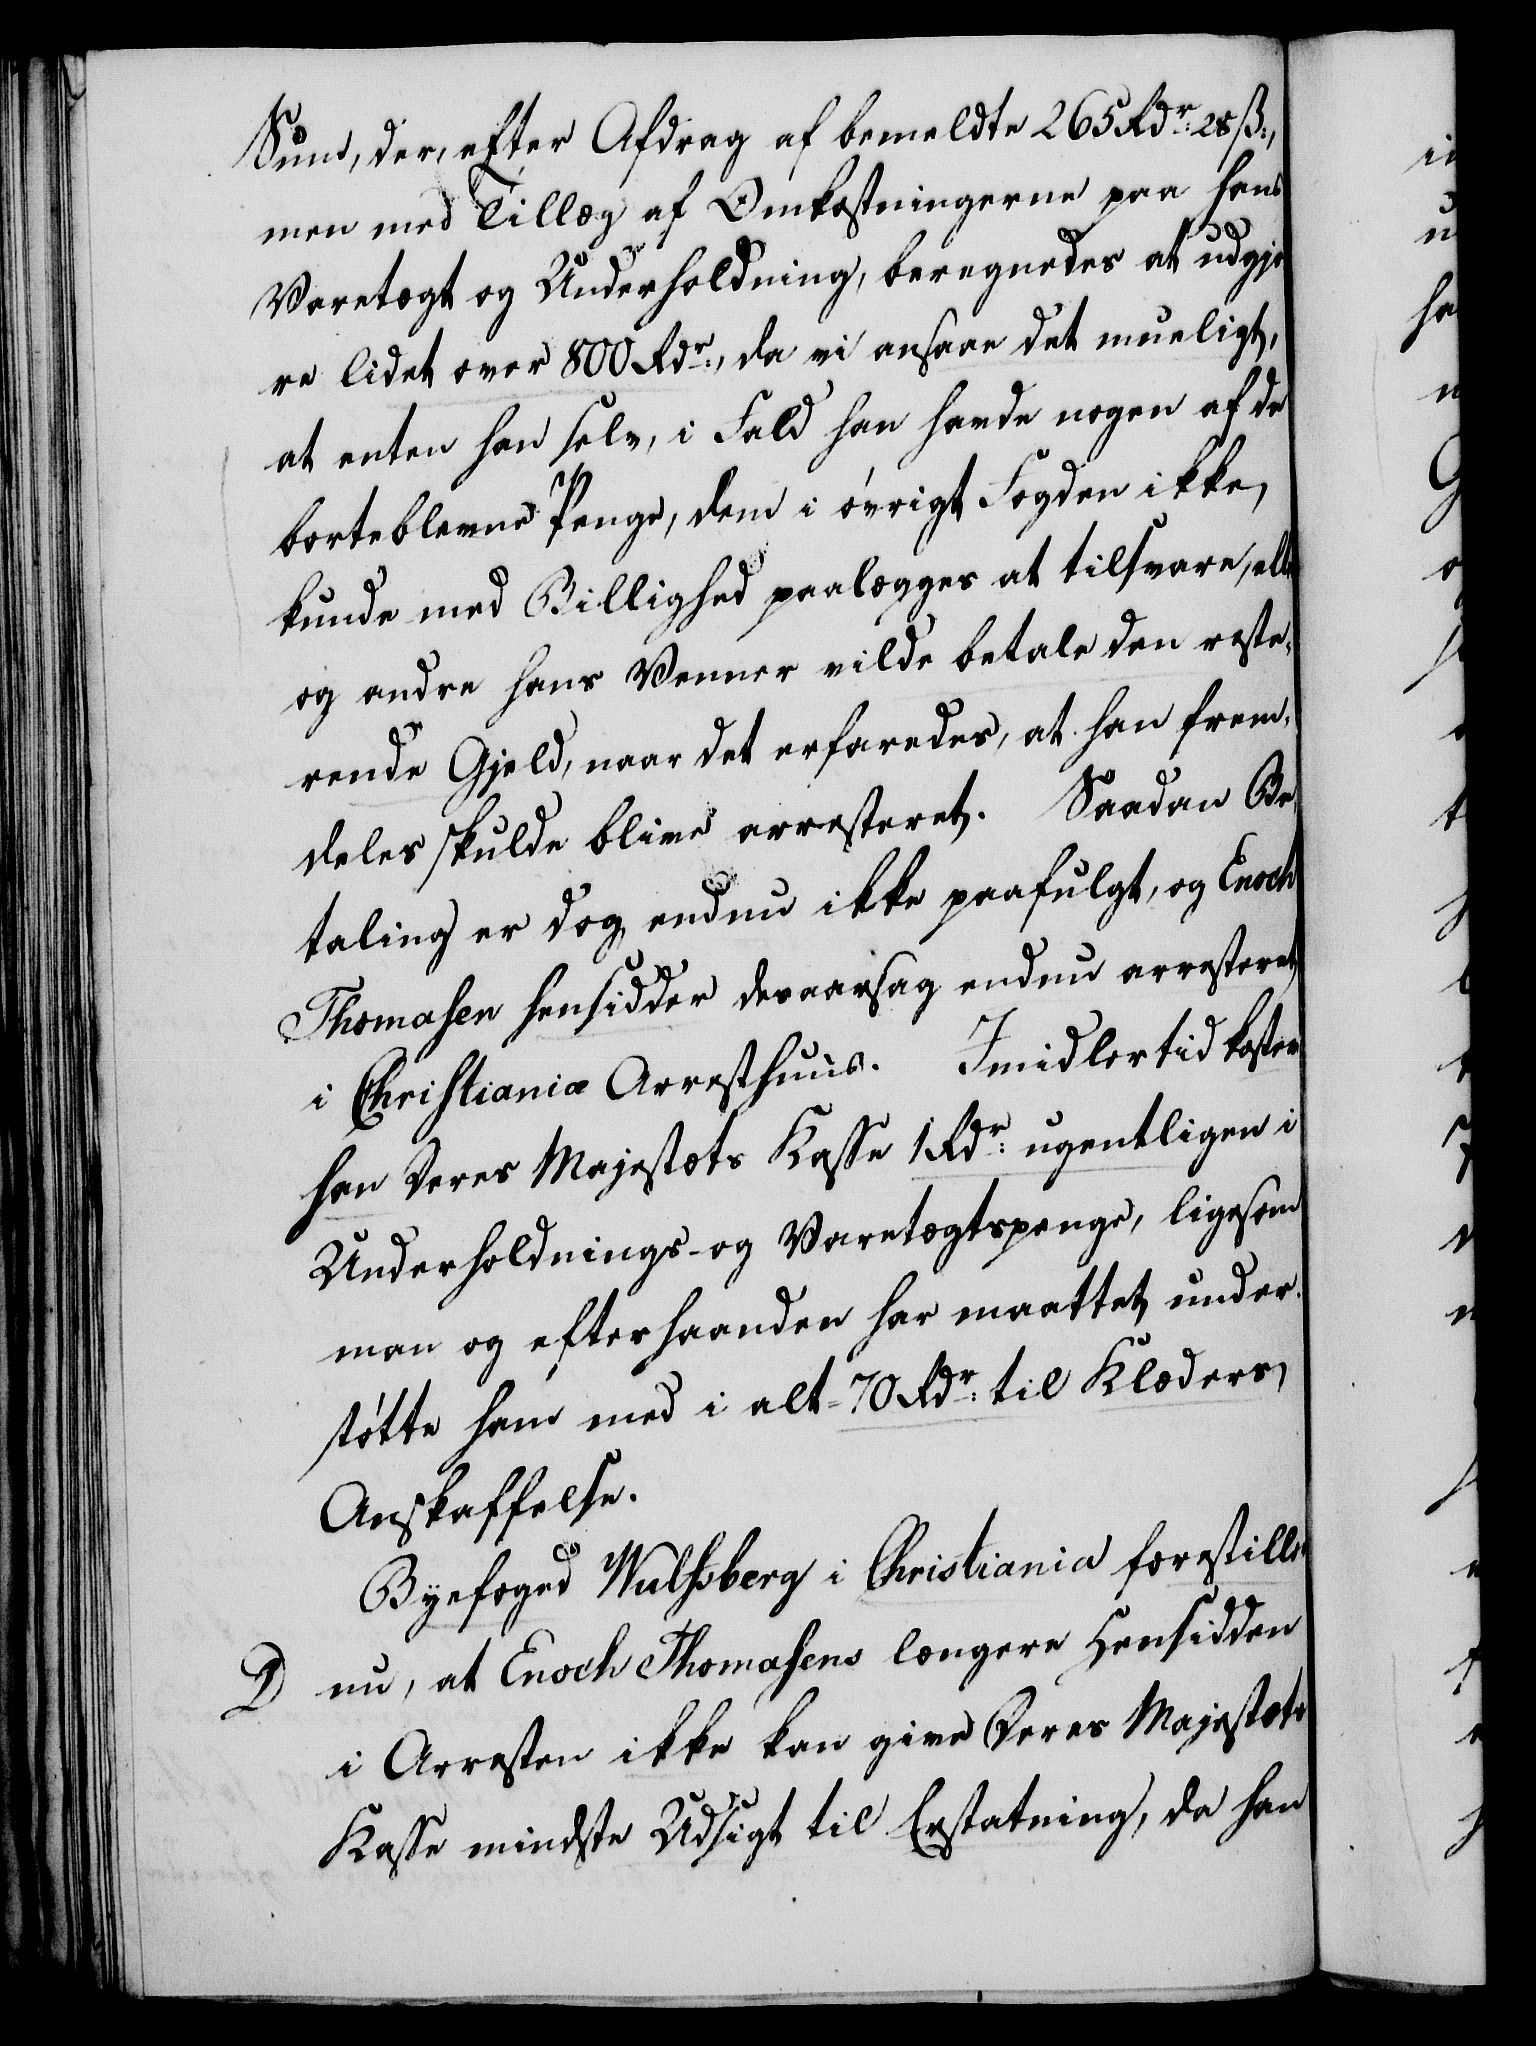 Sum, der, efter Afdrag af bemeldte 265 Rdr: 28 ß:,
men med Tillæg af Omkostningerne paa hans
Varetægt og Underholdning, beregnedes at udgjø
re lidet over 800 Rdr:, da vi ansaae det mueligt,
at enten han selv, i Fald han havde nogen af de
borteblevne Penge, dem i øvrigt Fogden ikke
kunde med Billighed paalægges at tilsvare, ell
og andre hans Venner vilde betale den reste-
rende Gjeld, naar det erfaredes, at han frem-
deles skulde blive arresteret. Saadan Be
taling er dog endnu ikke paafulgt, og Enoch
Thomasen hensidder desaarsag endnu arresteret
i Christianiæ Arresthuus. Imidlertid koster
han Deres Majestæts Kasse 1 Rdr: ugentligen i
Underholdnings- og Varetægtspenge, ligesom
man og efterhaanden har maattet under-
støtte ham med i alt 70 Rdr: til Klæders
Anskaffelse.
Byefoged Wulfsberg i Christiania forestiller
D nu, at Enoch Thomasens længere Hensidden
i Arresten ikke kan give Deres Majestæts
Kasse mindste Udsigt til Erstatning, da han